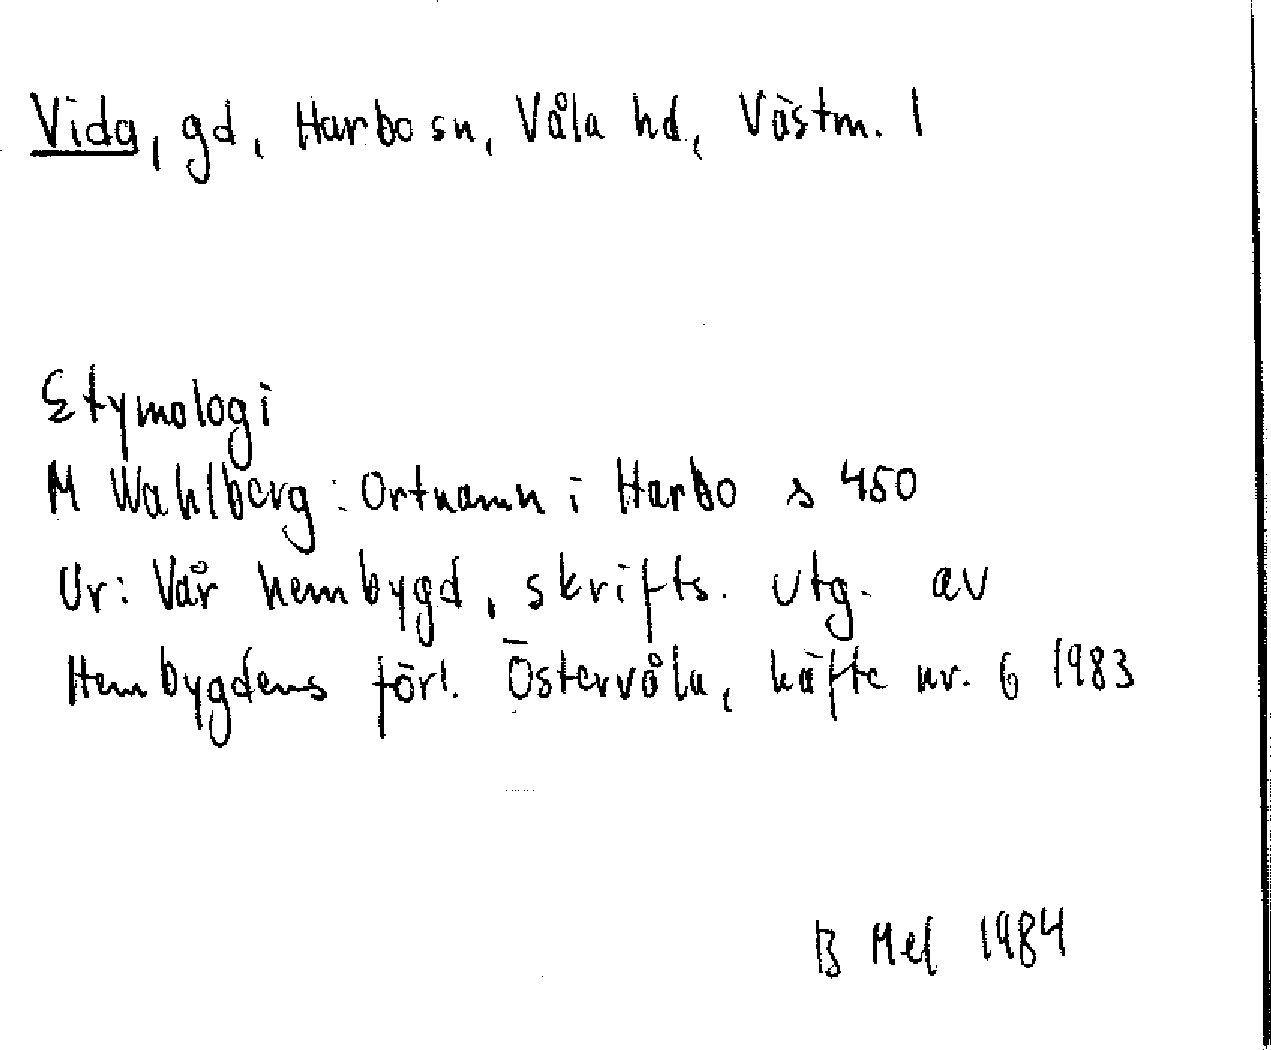 Vida, gd, Harbo sn, Våla hd, Västm. l
Etymologi
M Wahlberg: Ortnamn i Harbo s 450
Ur: Vår hembygd, skrifts. utg. av
Hembygdens förl. Östervåla, häfte nr. 6 1983
B Mel 1984